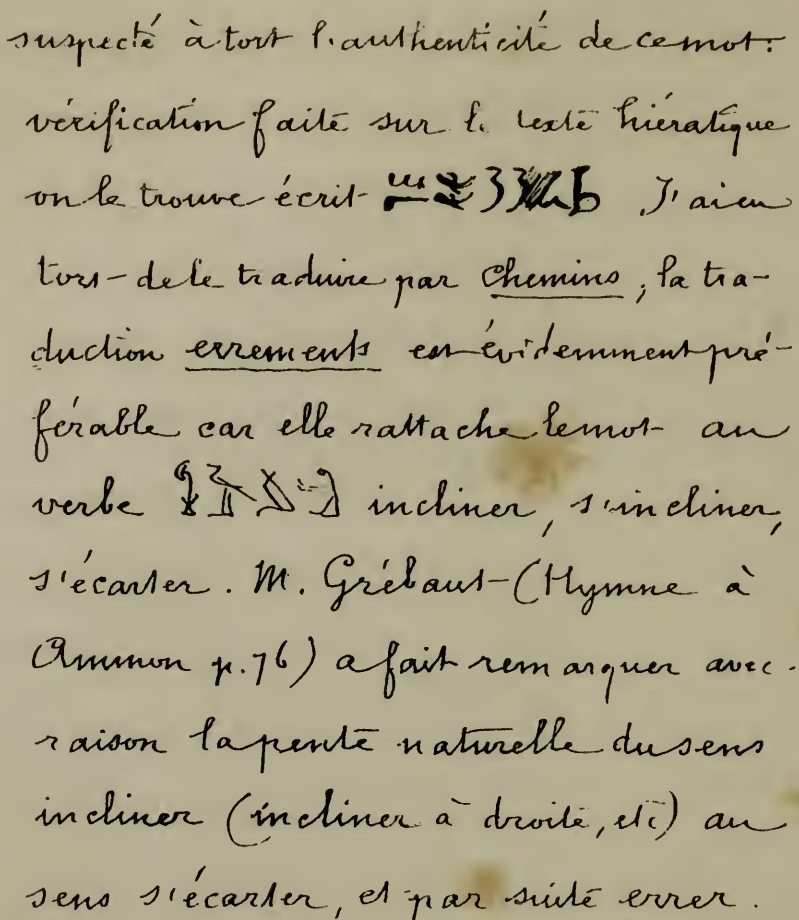 suspecté à tort l'authenticité de ce mot:
vérification faite sur le texte hiératique
on le trouve écrit J'ai eu
tors de le traduire par chemins, la tra-
duction errements est évidemment pré-
férable car elle rattache le mot au
verbe incliner, s'incliner,
s'écarter. M. Grébaut (Hymne à
Ammon p. 76) a fait remarquer avec
raison la pente naturelle du sens
incliner (incliner à droite, etc) au
sens s'écarter, et par suite errer.